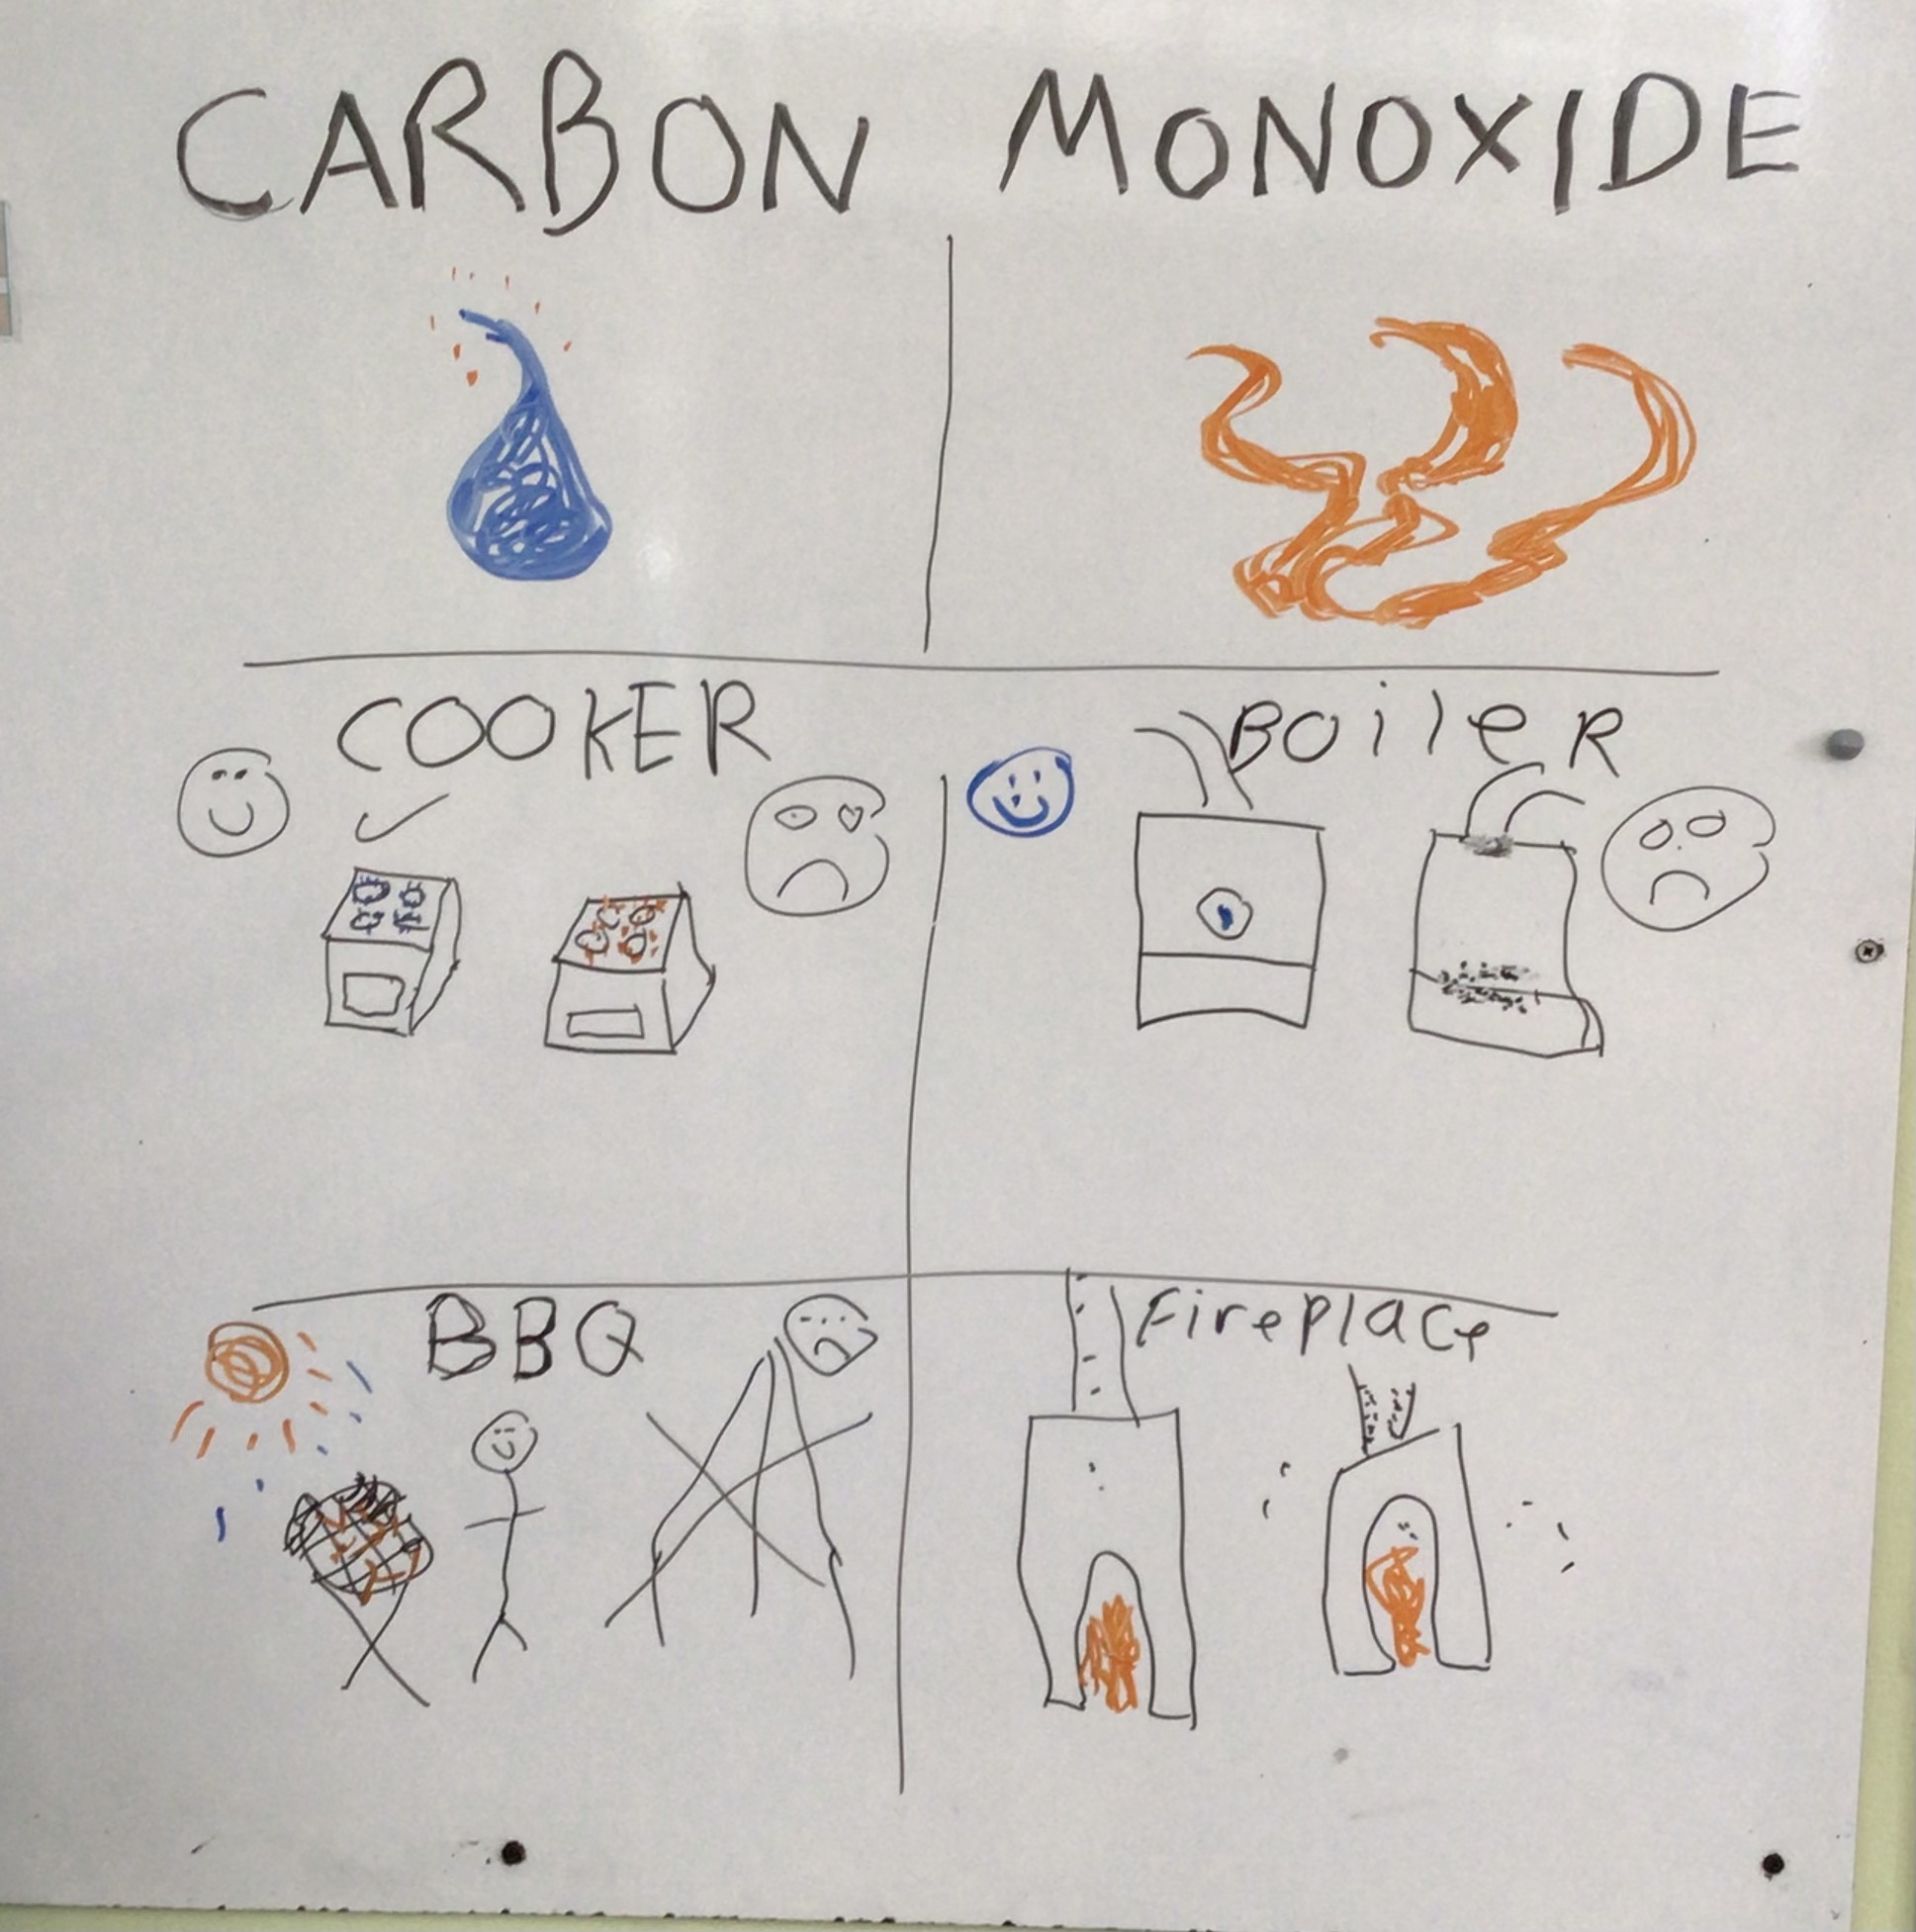 CARBON MONOXIDE
COOKER
BOileR
BBQ
Fireplace